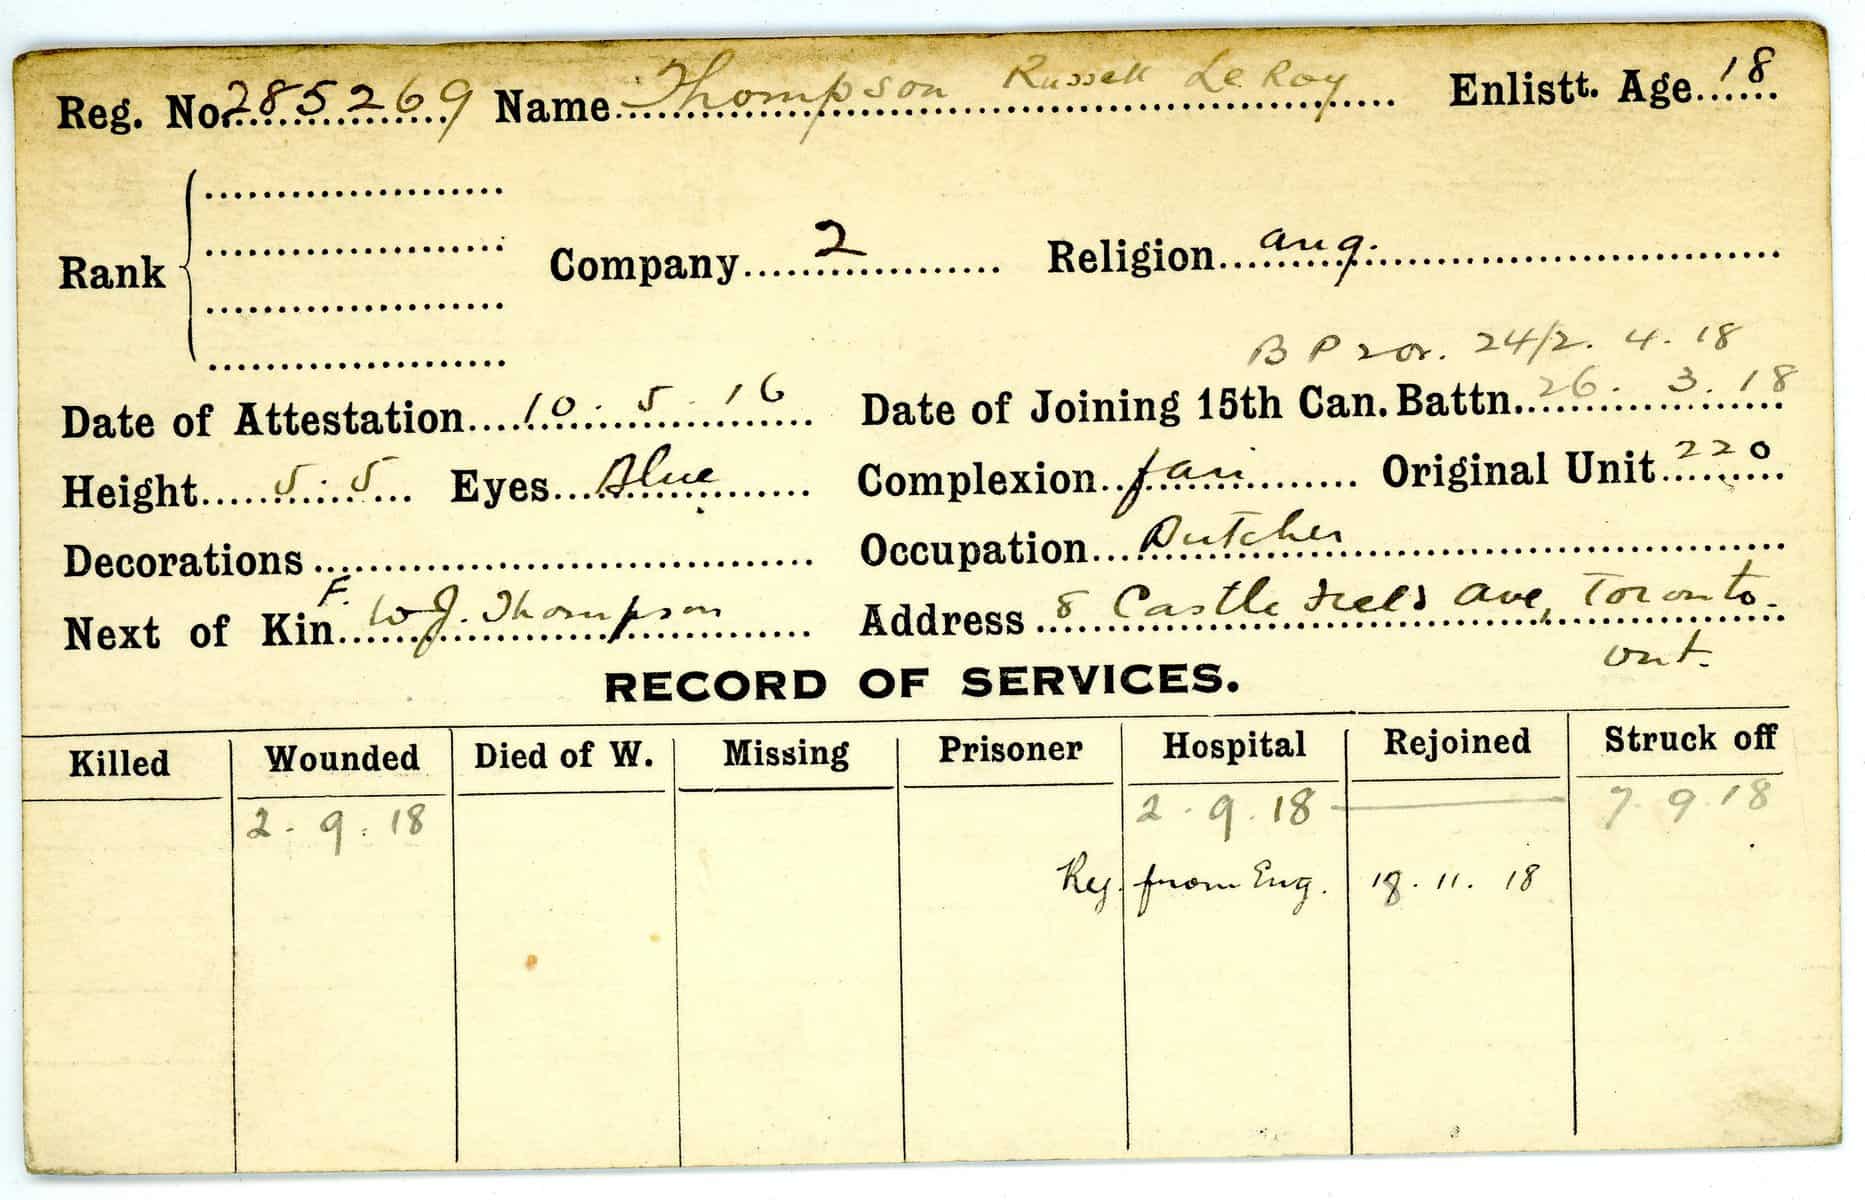 Reg. No. 285269 Name Thompson Russell LeRoy Enlistt. Age 18
Rank Company 2 Religion ang.
B P 24/2. 4. 18
Date of Attestation 10. 5. 16 Date of Joining 15th Can. Battn. 26. 3. 18
Height 5. 5 Eyes Blue Complexion fair Original Unit 220
Decorations Occupation Butcher
F.
Next of Kin W J. Thompson Address 8 Castle Field Ave, Toronto.
Ont.
RECORD OF SERVICES.
Killed Wounded Died of W. Missing Prisoner Hospital Rejoined Struck off
2. 9. 18 2. 9. 18 7. 9. 18
from Eng. 18. 11. 18